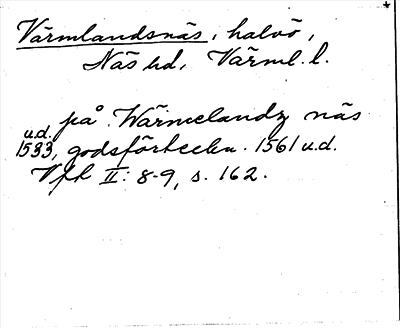 Värmlandsnäs, halvö,
Näs hd, Värml. l.
på Wärmelandz näs
u.d.
1533, godsförteckn. 1561 u.d.
Vfh II: 8-9, s. 162.